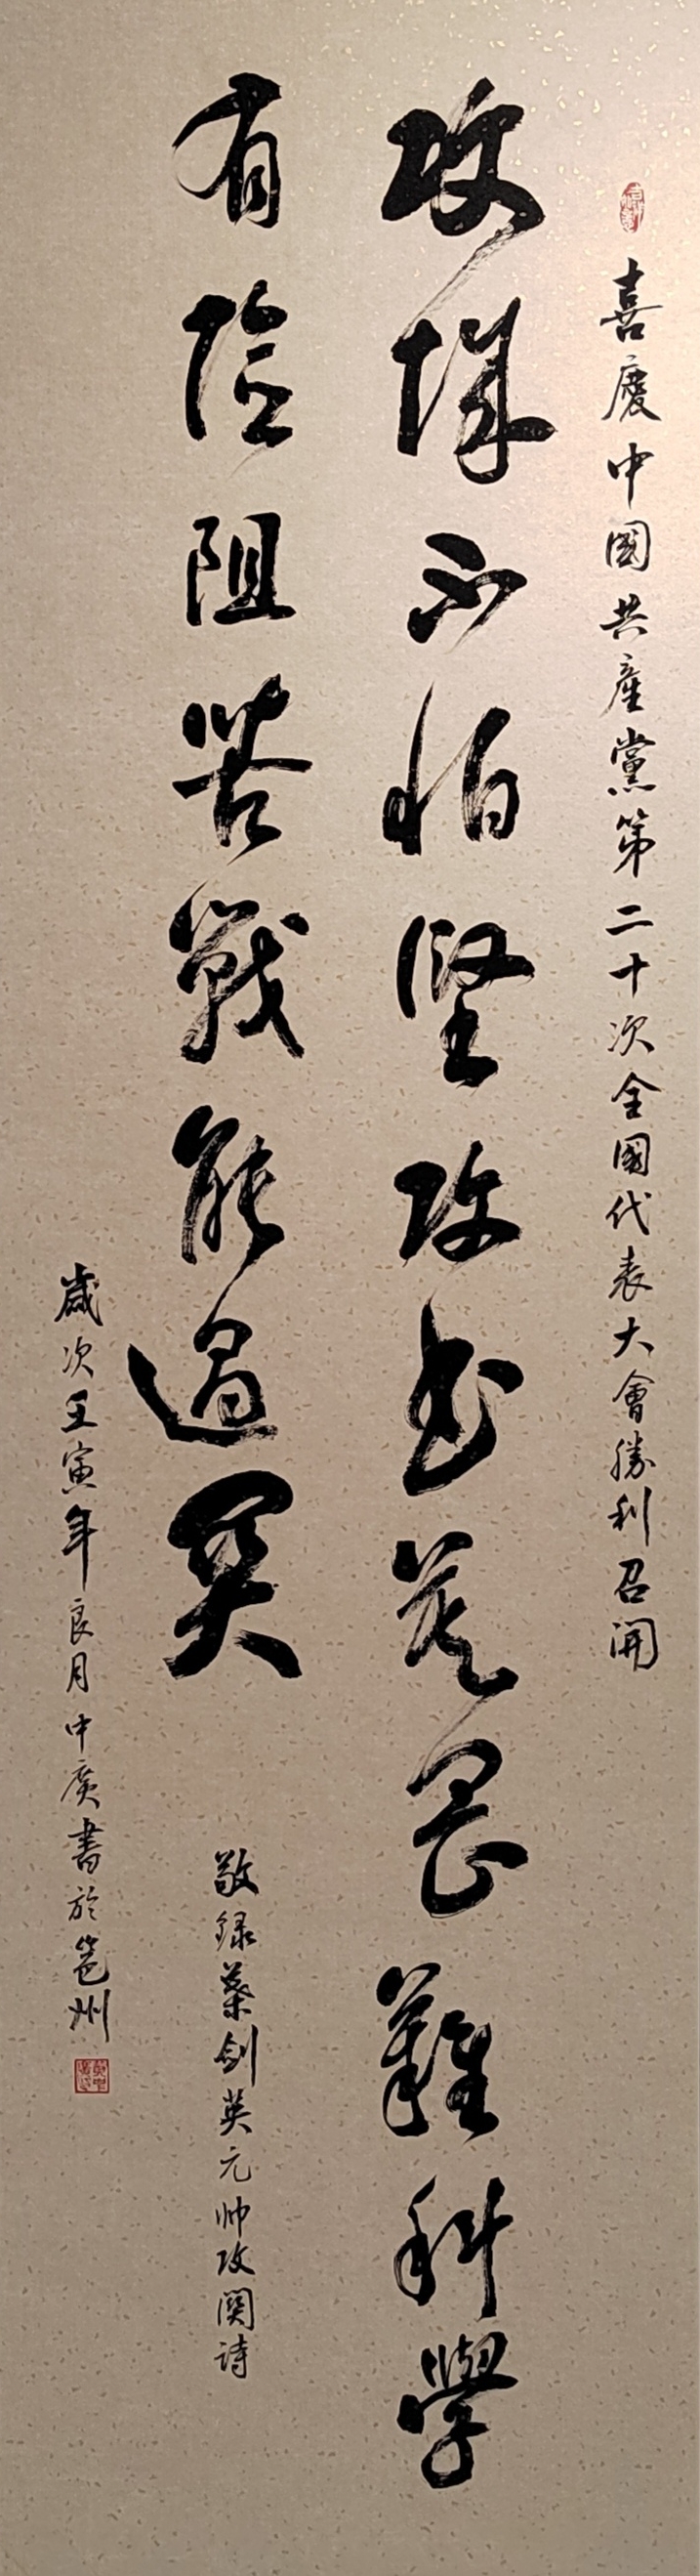 喜慶中國共産黨第二十次全國代表大會勝利召開
攻城不怕堅攻書莫畏難科學
有險阻苦戰能過關
敬録葉劍英元帅攻関詩
歲次壬寅年良月中廣書於邕州